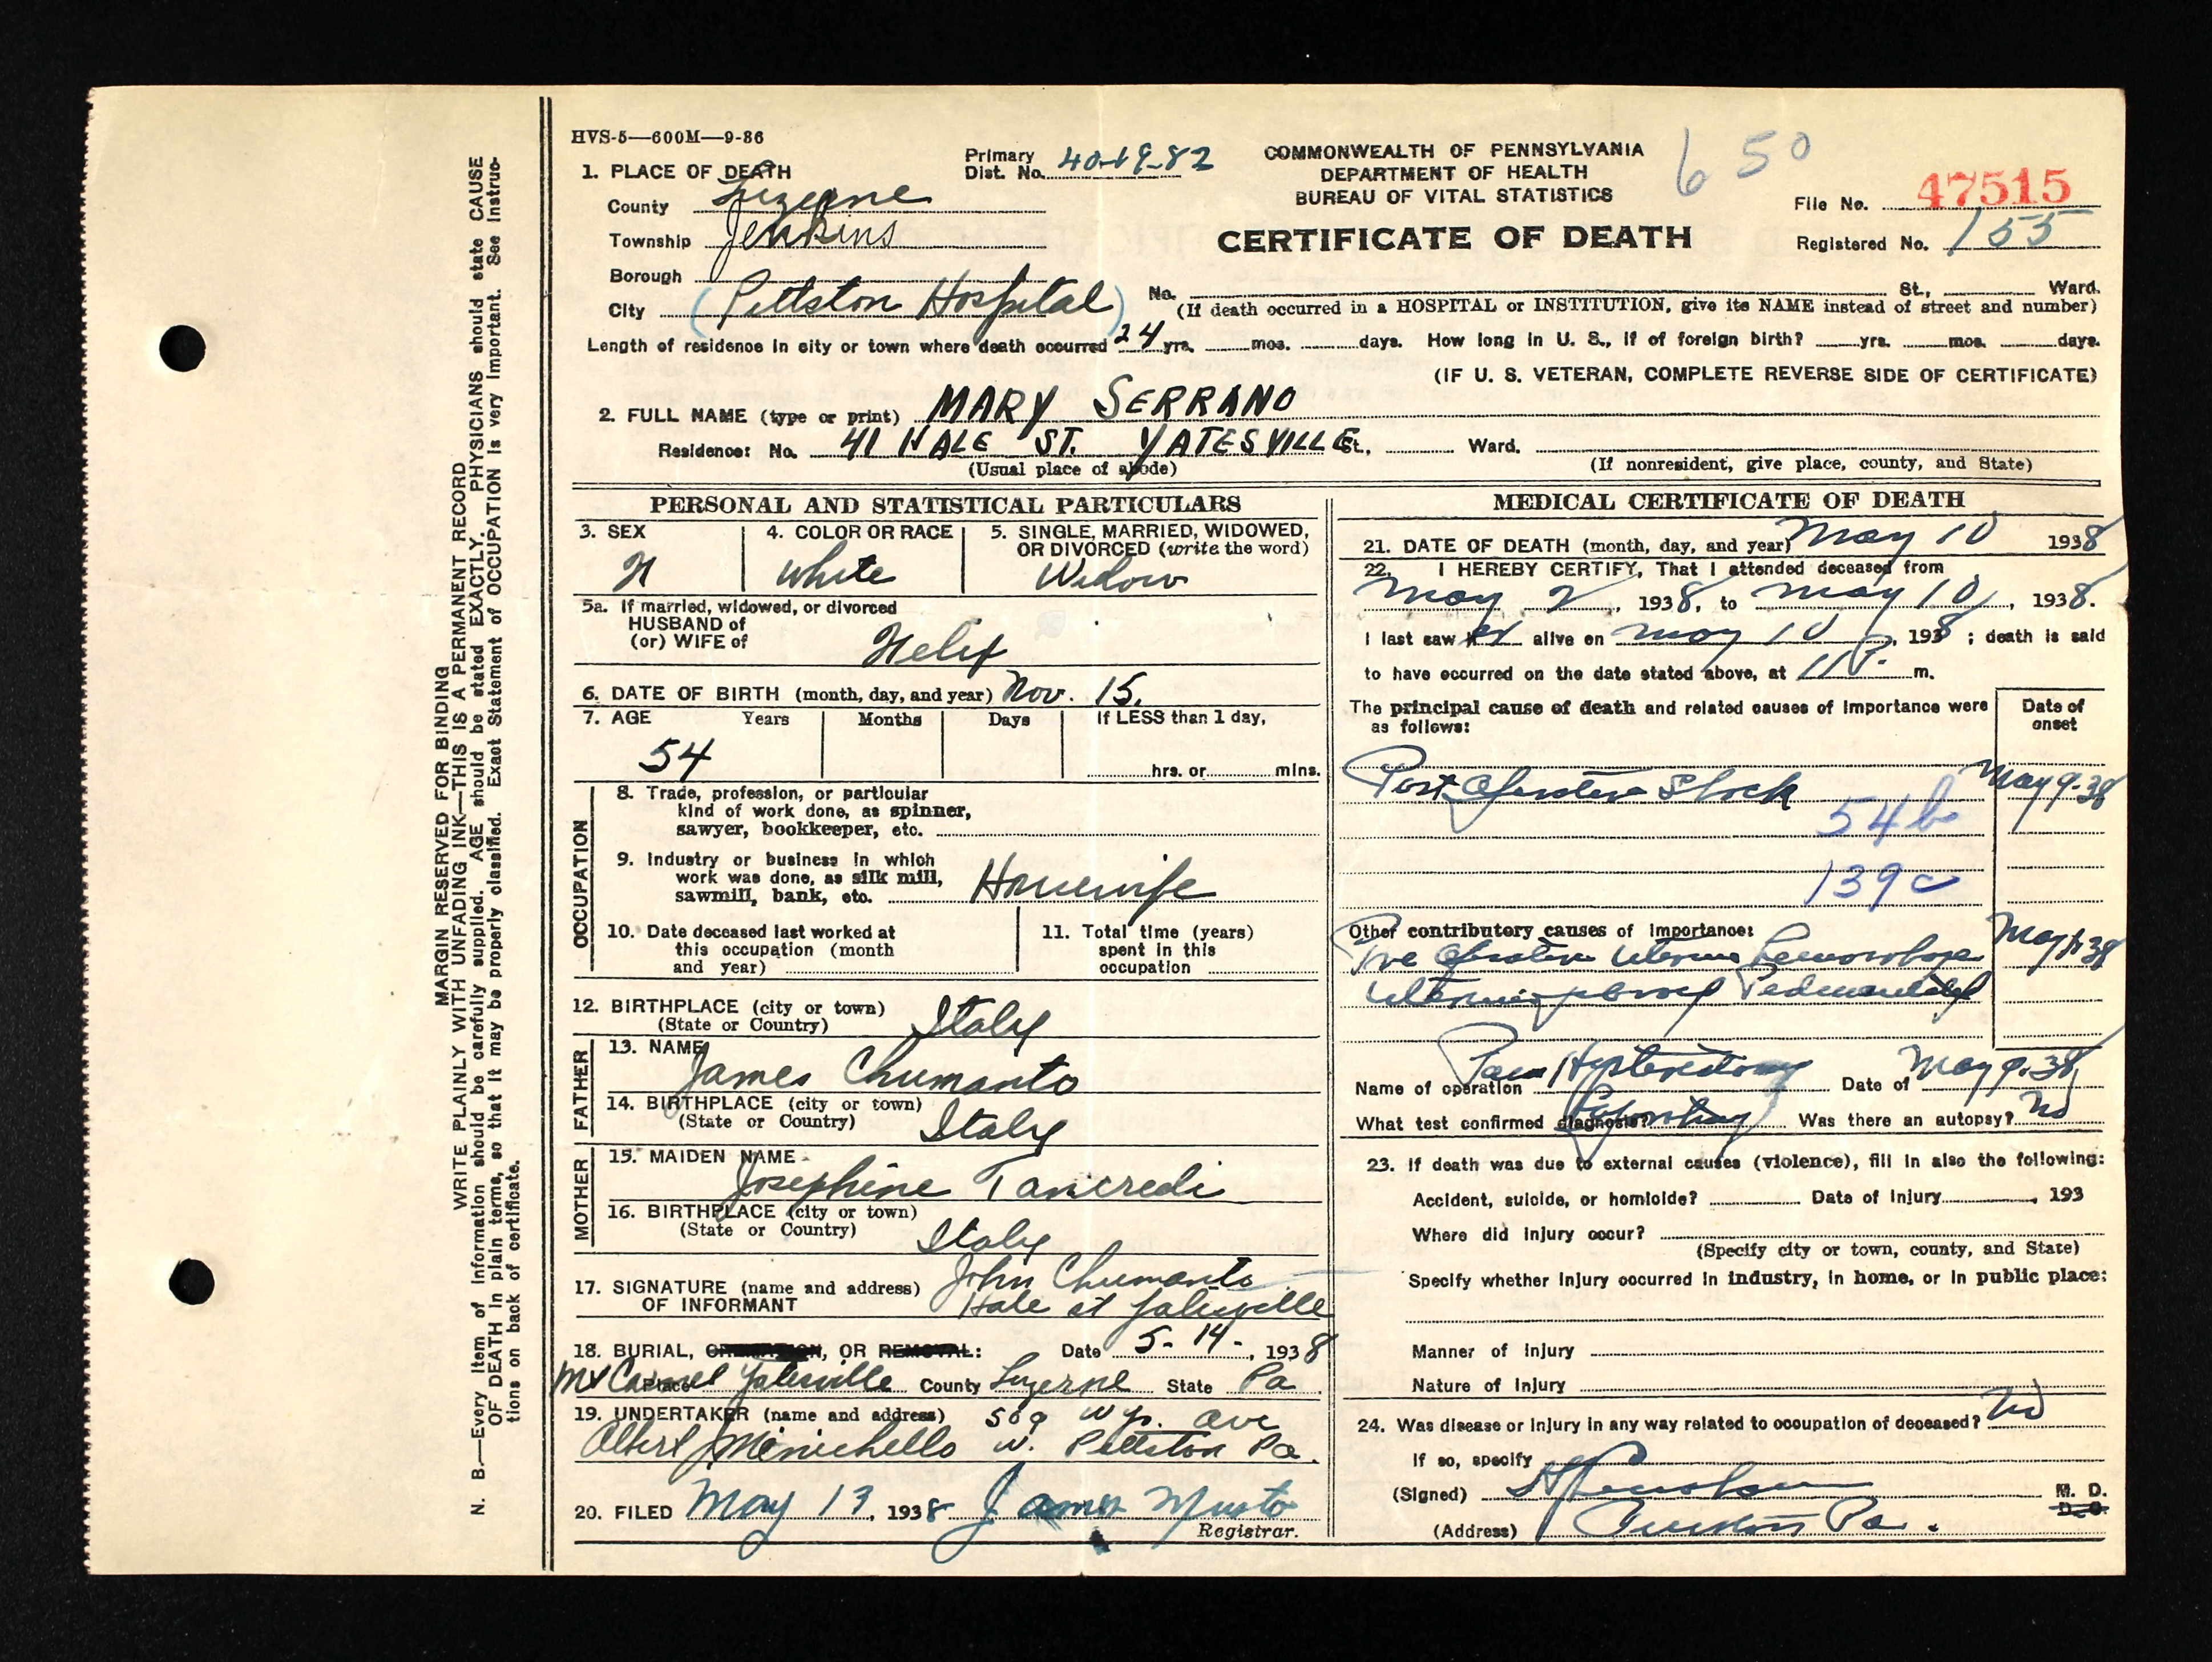 HVS-5—600M—9-36
1. PLACE OF DEATH
County Luzerne
Township Jenkins
Borough
City (Pittston Hospital)
Primary
Dist. No. 40-19-82
COMMONWEALTH OF PENNSYLVANIA
DEPARTMENT OF HEALTH
BUREAU OF VITAL STATISTICS
CERTIFICATE OF DEATH
650
File No. 47515
Registered No. 155
No. St., Ward.
(If death occurred in a HOSPITAL or INSTITUTION, give its NAME instead of street and number)
Length of residence in city or town where death occurred 24 yrs. mos. days. How long in U. S., if of foreign birth? yrs. mos. days.
(IF U. S. VETERAN, COMPLETE REVERSE SIDE OF CERTIFICATE)
2. FULL NAME (type or print) MARY SERRANO
Residence: No. 41 HALE ST. YATESVILLE St., Ward.
(Usual place of abode) (If nonresident, give place, county, and State)
PERSONAL AND STATISTICAL PARTICULARS
3. SEX
F
4. COLOR OR RACE
White
5. SINGLE, MARRIED, WIDOWED,
OR DIVORCED (write the word)
Widow
5a. If married, widowed, or divorced
HUSBAND of
(or) WIFE of Felix
6. DATE OF BIRTH (month, day, and year) Nov. 15.
7. AGE Years Months Days If LESS than 1 day,
54
hrs. or mins.
OCCUPATION
8. Trade, profession, or particular
kind of work done, as spinner,
sawyer, bookkeeper, etc.
9. Industry or business in which
work was done, as silk mill,
sawmill, bank, etc. Housewife
10. Date deceased last worked at
this occupation (month
and year)
11. Total time (years)
spent in this
occupation
12. BIRTHPLACE (city or town)
(State or Country) Italy
FATHER
13. NAME
James Chumanto
14. BIRTHPLACE (city or town)
(State or Country) Italy
MOTHER
15. MAIDEN NAME
Josephine Tancredi
16. BIRTHPLACE (city or town)
(State or Country) Italy
17. SIGNATURE (name and address) John Chumanto
OF INFORMANT Hale st Yatesville
18. BURIAL, CREMATION, OR REMOVAL: Date 5-14-, 1938
Place Mt Carmel Yatesville County Luzerne State Pa
19. UNDERTAKER (name and address) 509 Wy. Ave
Albert J Minichello W. Pittston Pa.
20. FILED May 13, 1938 James Musto
Registrar.
MEDICAL CERTIFICATE OF DEATH
21. DATE OF DEATH (month, day, and year) May 10 1938
22. I HEREBY CERTIFY, That I attended deceased from
May 2, 1938, to May 10, 1938.
I last saw her alive on May 10, 1938; death is said
to have occurred on the date stated above, at 11 P. m.
The principal cause of death and related causes of importance were
as follows:
Date of
onset
Post Operative Shock May 9-38
54b
139c
Other contributory causes of importance:
Pre Operative Uterine hemorrhage
Name of operation Pan Hysterectomy Date of May 9-38
What test confirmed diagnosis? Was there an autopsy? No
23. If death was due to external causes (violence), fill in also the following:
Accident, suicide, or homicide? Date of injury , 193
Where did injury occur?
(Specify city or town, county, and State)
Specify whether injury occurred in industry, in home, or in public place:
Manner of injury
Nature of injury
24. Was disease or injury in any way related to occupation of deceased? No
If so, specify
(Signed) M. D.
D. O.
(Address) Pittston Pa.
MARGIN RESERVED FOR BINDING
WRITE PLAINLY WITH UNFADING INK—THIS IS A PERMANENT RECORD
N. B.—Every item of information should be carefully supplied. AGE should be stated EXACTLY. PHYSICIANS should state CAUSE
OF DEATH in plain terms, so that it may be properly classified. Exact Statement of OCCUPATION is very important. See instruc-
tions on back of certificate.